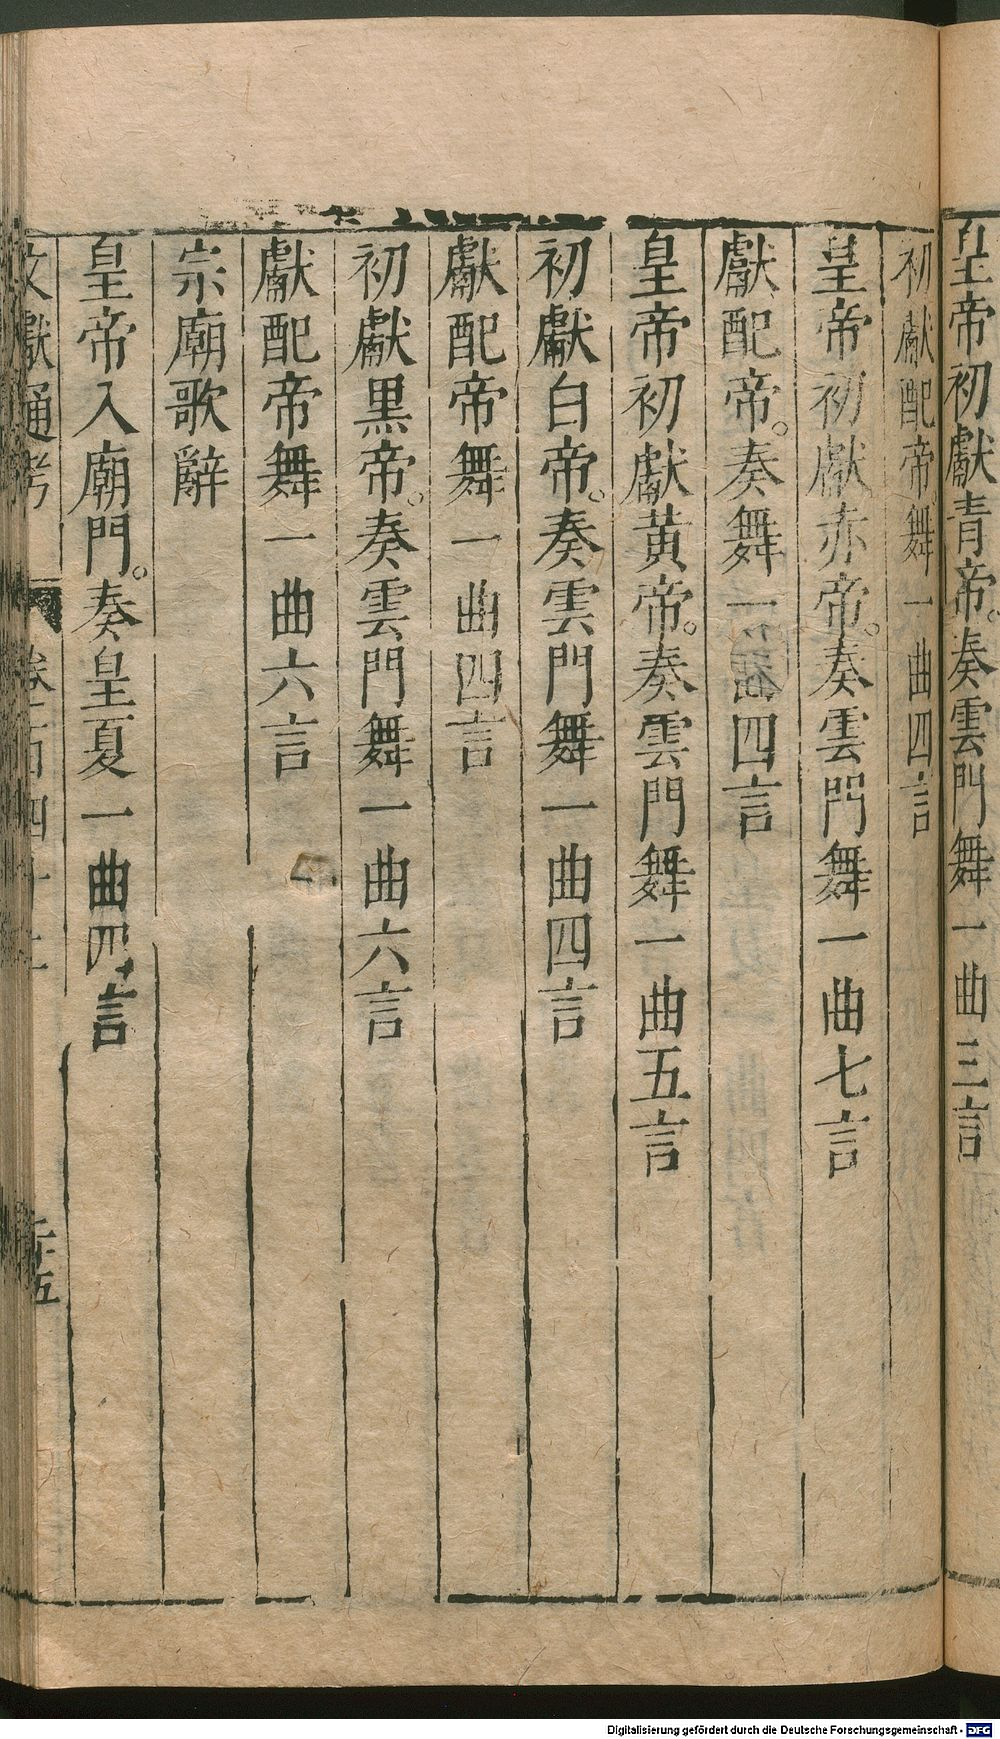 皇帝初獻青帝。奏雲門舞一曲三言
初獻配帝舞一曲四言
皇帝初獻赤帝。奏雲門舞一曲七言
獻配帝。奏舞一曲四言
皇帝初獻黃帝。奏雲門舞一曲五言
初獻白帝。奏雲門舞一曲四言
獻配帝舞一曲四言
初獻黑帝。奏雲門舞一曲六言
獻配帝舞一曲六言
宗廟歌辭
皇帝入廟門。奏皇夏一曲四言
文獻通考 卷一百四十 五
Digitalisierung gefördert durch die Deutsche Forschungsgemeinschaft - DFG